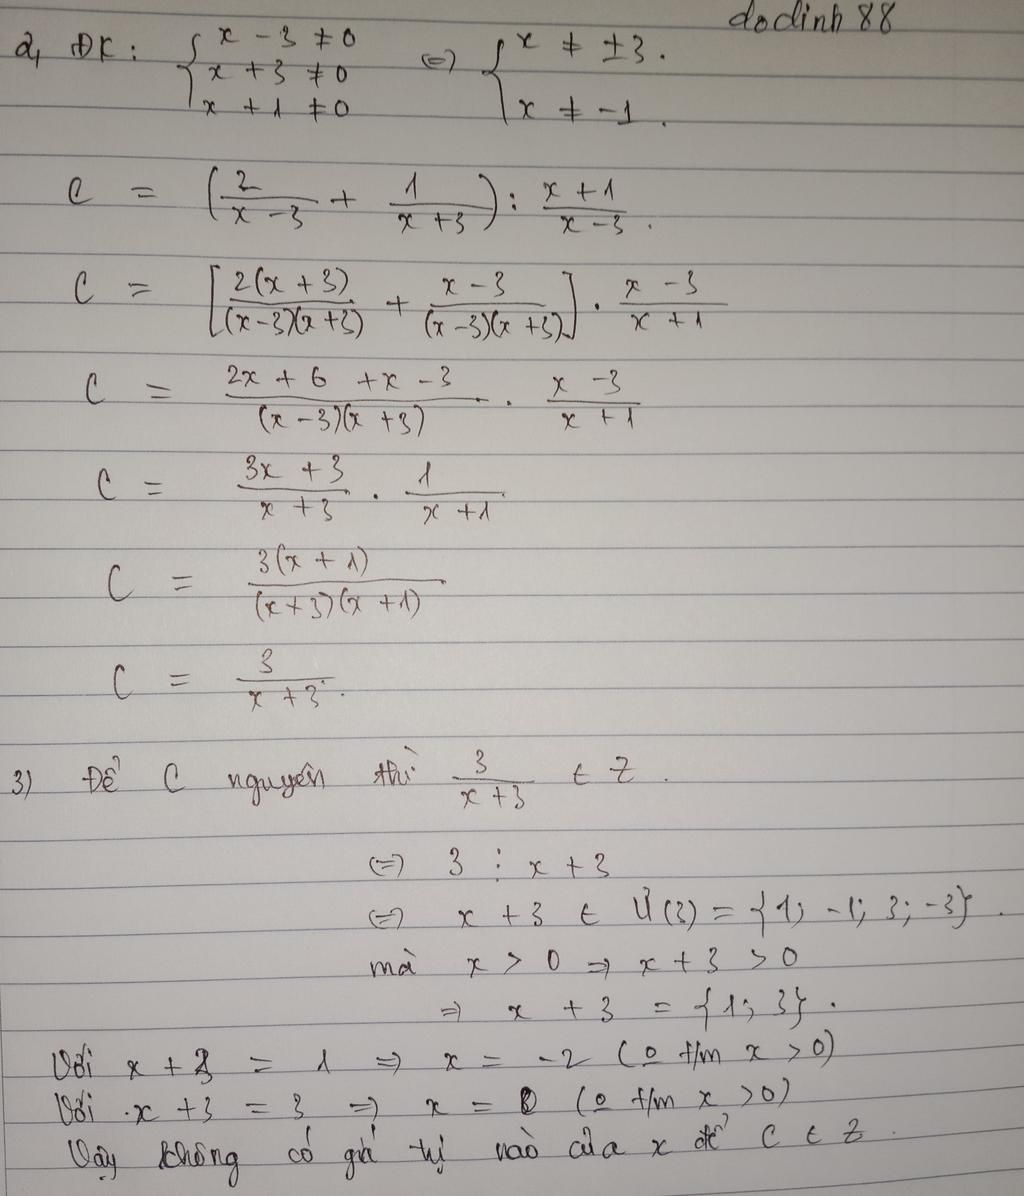 dodinh 88
2, ĐK: { x - 3 ≠ 0 ; x + 3 ≠ 0 ; x + 1 ≠ 0 (=) { x ≠ ±3. ; x ≠ -1.
C = (2/(x - 3) + 1/(x + 3)) : (x + 1)/(x - 3).
C = [2(x + 3)/((x-3)(x+3)) + (x - 3)/((x-3)(x+3))] . (x - 3)/(x + 1)
C = (2x + 6 + x - 3)/((x-3)(x+3)) . (x - 3)/(x + 1)
C = (3x + 3)/(x + 3) . 1/(x + 1)
C = 3(x + 1)/((x+3)(x+1))
C = 3/(x + 3).
3) Để C nguyên thì 3/(x + 3) ∈ Z.
(=) 3 ⋮ x + 3
(=) x + 3 ∈ Ư(3) = {1; -1; 3; -3}.
mà x > 0 => x + 3 > 0
=> x + 3 = {1; 3}.
Với x + 3 = 1 => x = -2 (o t/m x > 0)
Với x + 3 = 3 => x = 0 (o t/m x > 0)
Vậy không có giá trị nào của x để C ∈ Z.